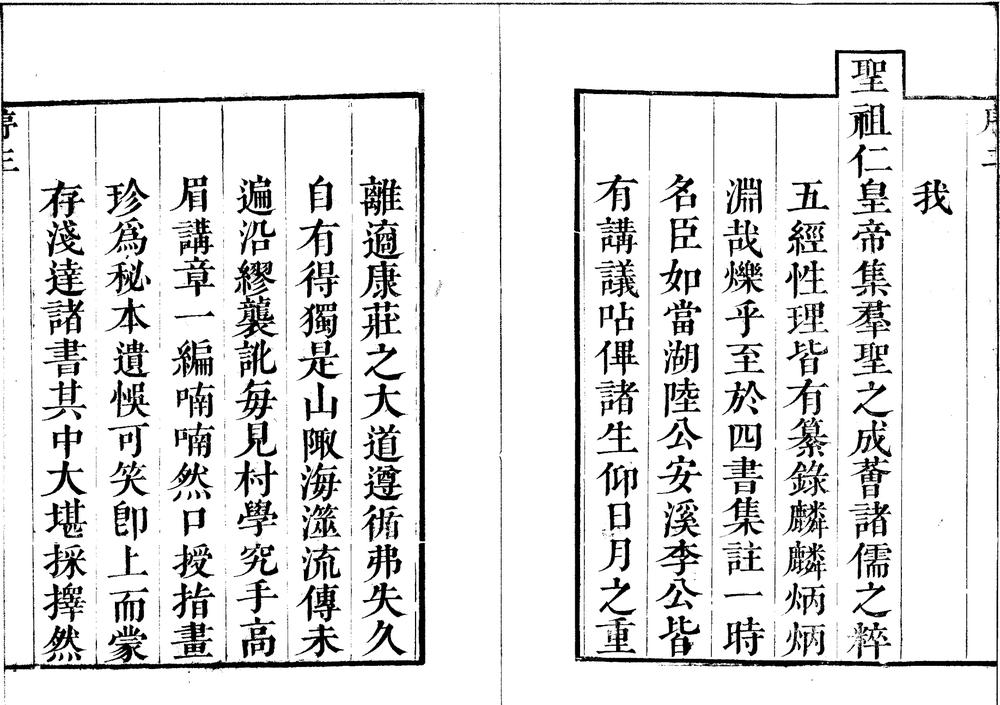 我
聖祖仁皇帝集羣聖之成薈諸儒之粹
五經性理皆有纂錄麟麟炳炳
淵哉爍乎至於四書集註一時
名臣如當湖陸公安溪李公皆
有講議呫俾諸生仰日月之重
離遹康莊之大道遵循弗失久
自有得獨是山陬海澨流傳未
遍沿繆襲訛每見村學究手高
眉講章一編喃喃然口授指畫
珍爲秘本遺悞可笑卽上而蒙
存淺達諸書其中大堪採擇然